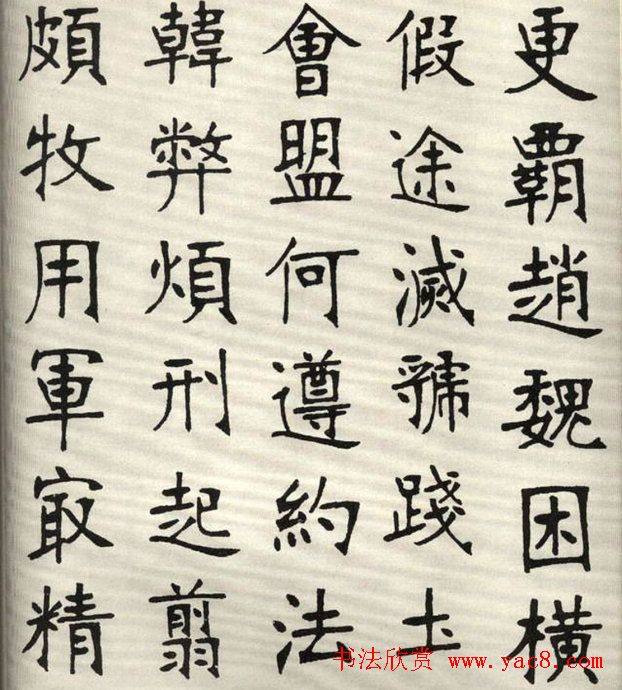 更霸趙魏困横
假途滅虢踐土
會盟何遵約法
韓弊煩刑起翦
頗牧用軍冣精
书法欣赏 www.yac8.com